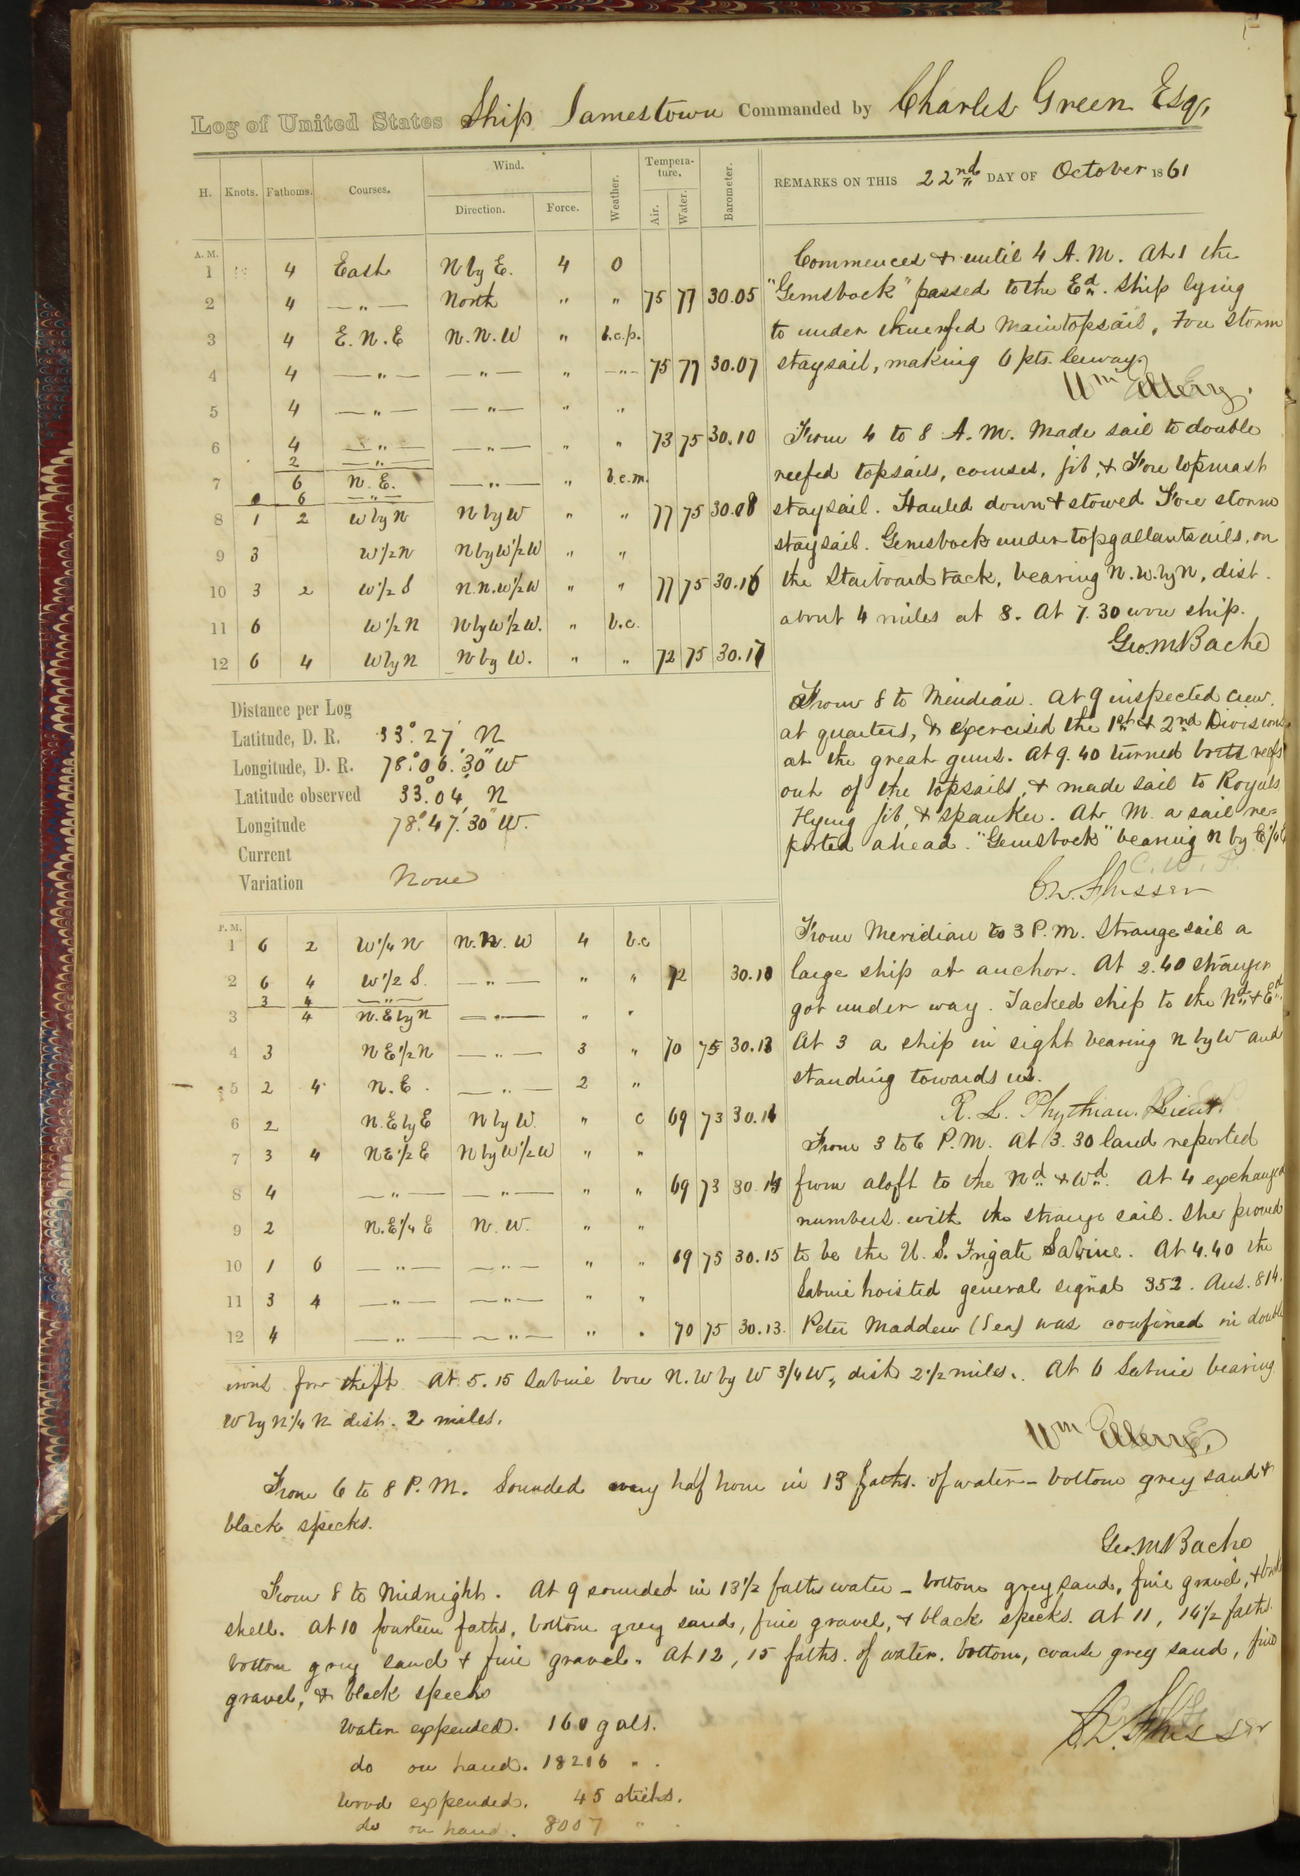 Log of United States Ship Jamestown Commanded by Charles Green Esq,
H. Knots. Fathoms. Courses. Wind. Direction. Force. Weather. Tempera-ture. Air. Water. Barometer.
REMARKS ON THIS 22nd DAY OF October 1861
A. M.
1 4 East N by E. 4 O
2 4 — " — North " " 75 77 30.05
3 4 E. N. E N. N. W " b.c.p.
4 4 — " — — " — " — " — 75 77 30.07
5 4 — " — — " — " "
6 4 — " — — " — " " 73 75 30.10
2 — " —
7 6 N. E. — " — " b.c.m.
6 — " —
8 1 2 W by N N by W " " 77 75 30.08
9 3 W 1/2 N N by W 1/2 W " "
10 3 2 W 1/2 S N. N. W 1/2 W " " 77 75 30.16
11 6 W 1/2 N N by W 1/2 W. " b.c.
12 6 4 W by N N by W. " " 72 75 30.17
Commences & until 4 A. M. At 1 the
"Gemsbock" passed to the Ed. Ship lying
to under Maintopsail, Fore storm
staysail, making 6 pts. leeway.
Wm Ellery.
From 4 to 8 A. M. Made sail to double
reefed topsails, courses, jib, & Fore topmast
staysail. Hauled down & stowed Fore storm
staysail. Gemsbock under topgallantsails, on
the Starboard tack, bearing N. W. by N, dist.
about 4 miles at 8. At 7.30 wore ship.
Geo. M Bache
From 8 to Meridian. At 9 inspected crew
at quarters, & exercised the 1st & 2nd Divisions
at the great guns. At 9.40 turned both reefs
out of the topsails, & made sail to Royals
Flying jib, & spanker. At M. a sail re-
ported ahead. "Gemsbock" bearing N by E 1/2 E
C. W. F.
C. W. Flusser
Distance per Log
Latitude, D. R. 33° 27' N
Longitude, D. R. 78° 06' 30" W
Latitude observed 33° 04' N
Longitude 78° 47' 30" W.
Current
Variation None
P. M.
1 6 2 W 1/4 N N. N. W 4 b.c
2 6 4 W 1/2 S. — " — " " 72 30.10
3 4 — " —
3 4 N. E by N — " — " "
4 3 N E 1/2 N — " — 3 " 70 75 30.13
5 2 4 N. E. — " — 2 "
6 2 N. E by E N by W. " c 69 73 30.14
7 3 4 N E 1/2 E N by W 1/2 W " "
8 4 — " — — " — " " 69 73 30.14
9 2 N. E 1/4 E N. W. " "
10 1 6 — " — — " — " " 69 75 30.15
11 3 4 — " — — " — " "
12 4 — " — — " — " " 70 75 30.13.
From Meridian to 3 P. M. Strange sail a
large ship at anchor. At 2.40 stranger
got under way. Tacked ship to the Nd & Ed
At 3 a ship in sight bearing N by W and
standing towards us.
R. L. Phythian. Lieut.
From 3 to 6 P. M. At 3.30 land reported
from aloft to the Nd & Wd. At 4 exchanged
numbers with the strange sail. She proved
to be the U. S. Frigate Sabine. At 4.40 the
Sabine hoisted general signal 352. Ans. 814.
Peter Madden (Sea) was confined in double
irons for theft At 5.15 Sabine bore N. W by W 3/4 W, dist 2 1/2 miles. At 6 Sabine bearing
W by N 1/4 N dist. 2 miles.
Wm Ellery.
From 6 to 8 P. M. Sounded every half hour in 13 faths. of water — bottom grey sand &
black specks.
Geo. M Bache
From 8 to Midnight. At 9 sounded in 13 1/2 faths water — bottom grey sand, fine gravel, &
shell. At 10 fourteen faths, bottom grey sand, fine gravel, & black specks. At 11, 14 1/2 faths.
bottom grey sand & fine gravel. At 12, 15 faths. of water. bottom, coarse grey sand, fine
gravel, & black specks
C. W. Flusser
Water expended. 160 galls.
do on hand. 18216 "
Wood expended. 45 sticks.
do on hand. 8007 "